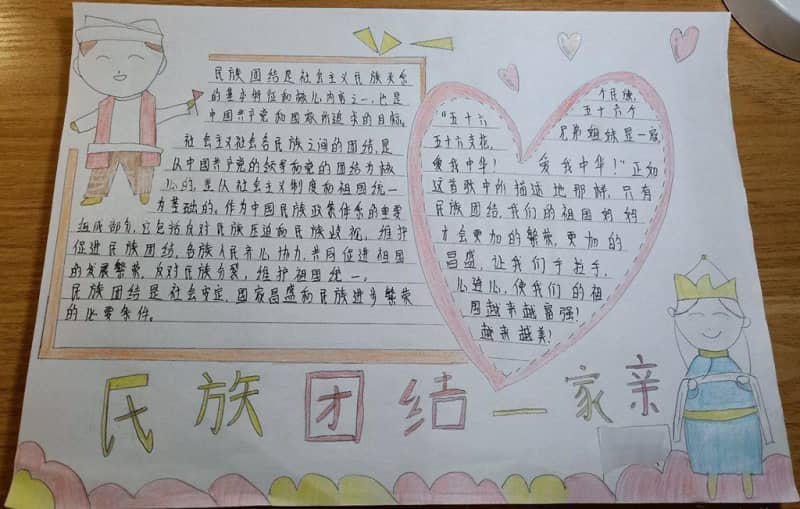 民族团结是社会主义民族关系
的基本特征和核心内容之一，也是
中国共产党和国家所追求的目标。
社会主义社会各民族之间的团结，是
以中国共产党的领导和党的团结为核
心的，是以社会主义制度和祖国统一
为基础的。作为中国民族政策体系的重要
组成部分，它包括反对民族压迫和民族歧视，维护
促进民族团结，各族人民齐心协力，共同促进祖国
的发展繁荣，反对民族分裂，维护祖国统一。
民族团结是社会安定、国家昌盛和民族进步繁荣
的必要条件。
"五十六个民族，
五十六支花，五十六个
兄弟姐妹是一家，
爱我中华！爱我中华！"正如
这首歌中所描述地那样，只有
民族团结，我们的祖国妈妈
才会更加的繁荣，更加的
昌盛，让我们手拉手，
心连心，使我们的祖
国越来越富强！
越来越美！
民族团结一家亲